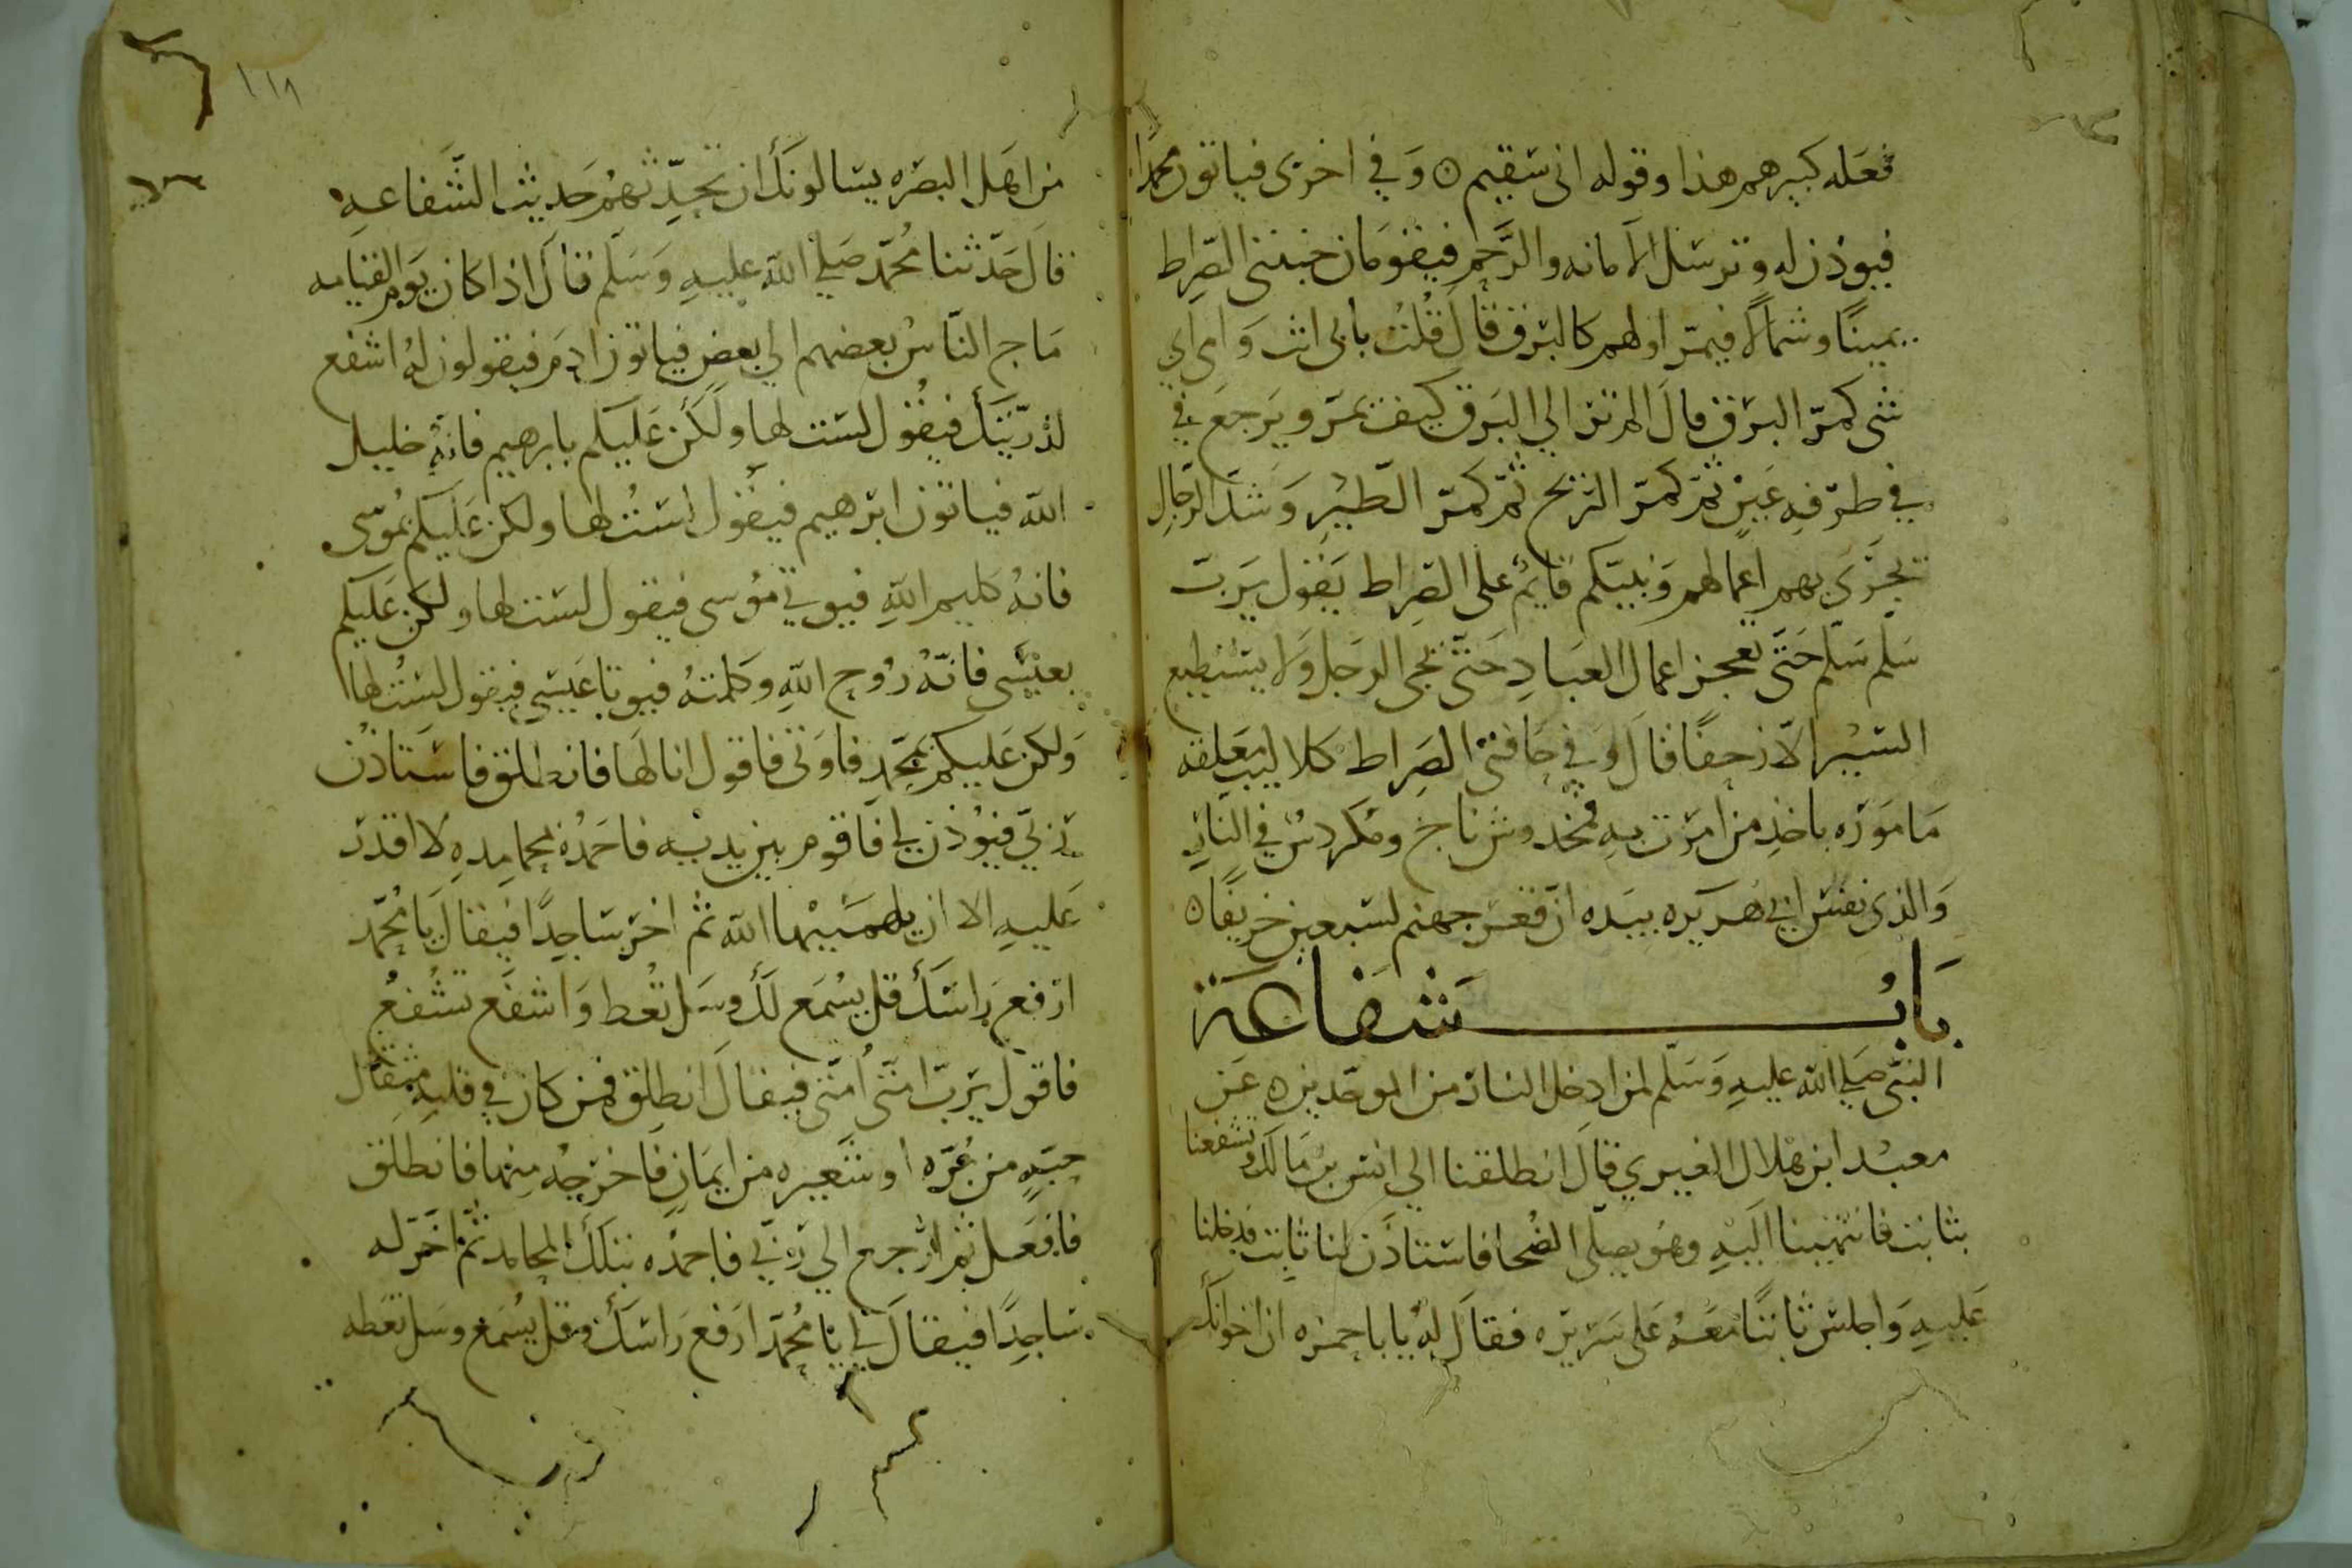 فعله كبيرهم هذا وقوله اني سقيم ه وَفي اخرى فياتون محمدًا
فيوذن له وترسل الامانه والرَّحِم فيقومَان جنبتي الصِّراط
يمينًا وشمالًا فيمرّ اولهم كالبَرق قالَ قُلتُ بابي انت وَامي اي
شي كمرّ البرق قالَ الم تر الي البَرق كيف يمرّ ويَرجعَ في
في طرفهِ عَينٍ ثمّ كمرّ الريح ثمّ كمرّ الطَّيْرِ وَشدّ الرّجالِ
تجرَي بهم اعمالهم وَنبيّكم قايمٌ على الصِّراط يَقول يَرب
سَلّم سَلّم حَتّى تعجز اعمال العبَادِ حَتّى يجي الرجل وَلا يستطيع
السَّيْر الّا زحفًا قالَ وَفي حَافتي الصِراط كلاليب معَلقه
مَامورَه باخذِ من امِرَت بهِ فمخدوش ناج ومكردسٌ في النّارِ
وَالذي نفسُ ابي هُريره بيَده انّ قعرَ جهنم لسَبعين خريفًا ه
بَابُ شَفَاعَة
النبيّ صَلي الله عليهِ وَسَلّم لمن ادخل النار من الموحّدين ه عَن
معبْد ابن هلال العيري قالَ انطلقنا الي انس بن مَالك وتشفعنا
بثابت فانتهينا اليْهِ وهُو يصلّي الضُحا فاستاذَن لنا ثابت فدخلنا
عَليهِ وَاجلسَ ثابتًا معَهُ عَلى سَريره فقالَ لهُ يابا حمزه ان اخوانك
١١٨
من اهَل البصَره يسَالونَكَ ان تحدّثهُم حَديث الشَّفاعهِ
قالَ حَدّثنا مُحَمّد صَلي الله عليهِ وَسَلّم قالَ اذا كان يَوم القيامه
مَاج النّاسُ بعضهم الي بعض فياتون ادمَ فيقولون لهُ اشفع
لذرّيتكَ فيقُول لسَت لها ولَكن عَليكم بابرهيم فانهُ خليل
الله فياتون ابرَهيم فيقُول لسَتُ لها ولكن عَليكم بمُوسى
فانهُ كليم اللهِ فيوتي مُوسى فيقول لسَت لها ولكن عَليكم
بعيْسَى فانّهُ رُوح اللهِ وَكلمتهُ فيوتا عَيسى فيقول لسَتُ لها
وَلكن عَليكم بمحَمّد فاوَتى فاقول انا لهَا فانطلق فاستَاذن
على ربّي فيُوذن لي فَاقوم بين يديْهِ فاحَمدُه بمحامِدهِ لا اقدر
عَليهِ الا ان يلهمَنيْها الله ثمّ اخرّ سَاجِدًا فيقالَ يَا مُحمّد
ارَفع رَاسَكَ قل يسْمَع لَك وسَل تُعْط وَاشفع تشُفعُ
فاقول يَرَبّ امّتي اُمّتي فيقالَ انطلق فمن كان في قلبهِ مثِقال
حبّهٍ من بُرّه او شَعيره من ايمَانٍ فاخرجهُ منهَا فانطلق
فافعَل ثمّ ارجع الي ربي فاحمدُه بتلكَ المحامد ثمّ اخرّ له
سَاجِدًا فيقالَ لي يا مُحَمّد ارَفع رَاسَك وقل يسُمَع وسَل تعَطه